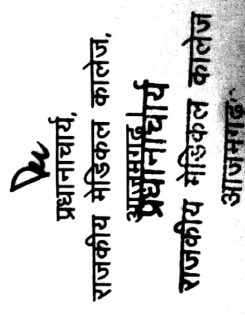 प्रधानाचार्य,
राजकीय मेडिकल कालेज,
आजमगढ़।
प्रधानाचार्य
राजकीय मेडिकल कालेज
आजमगढ़